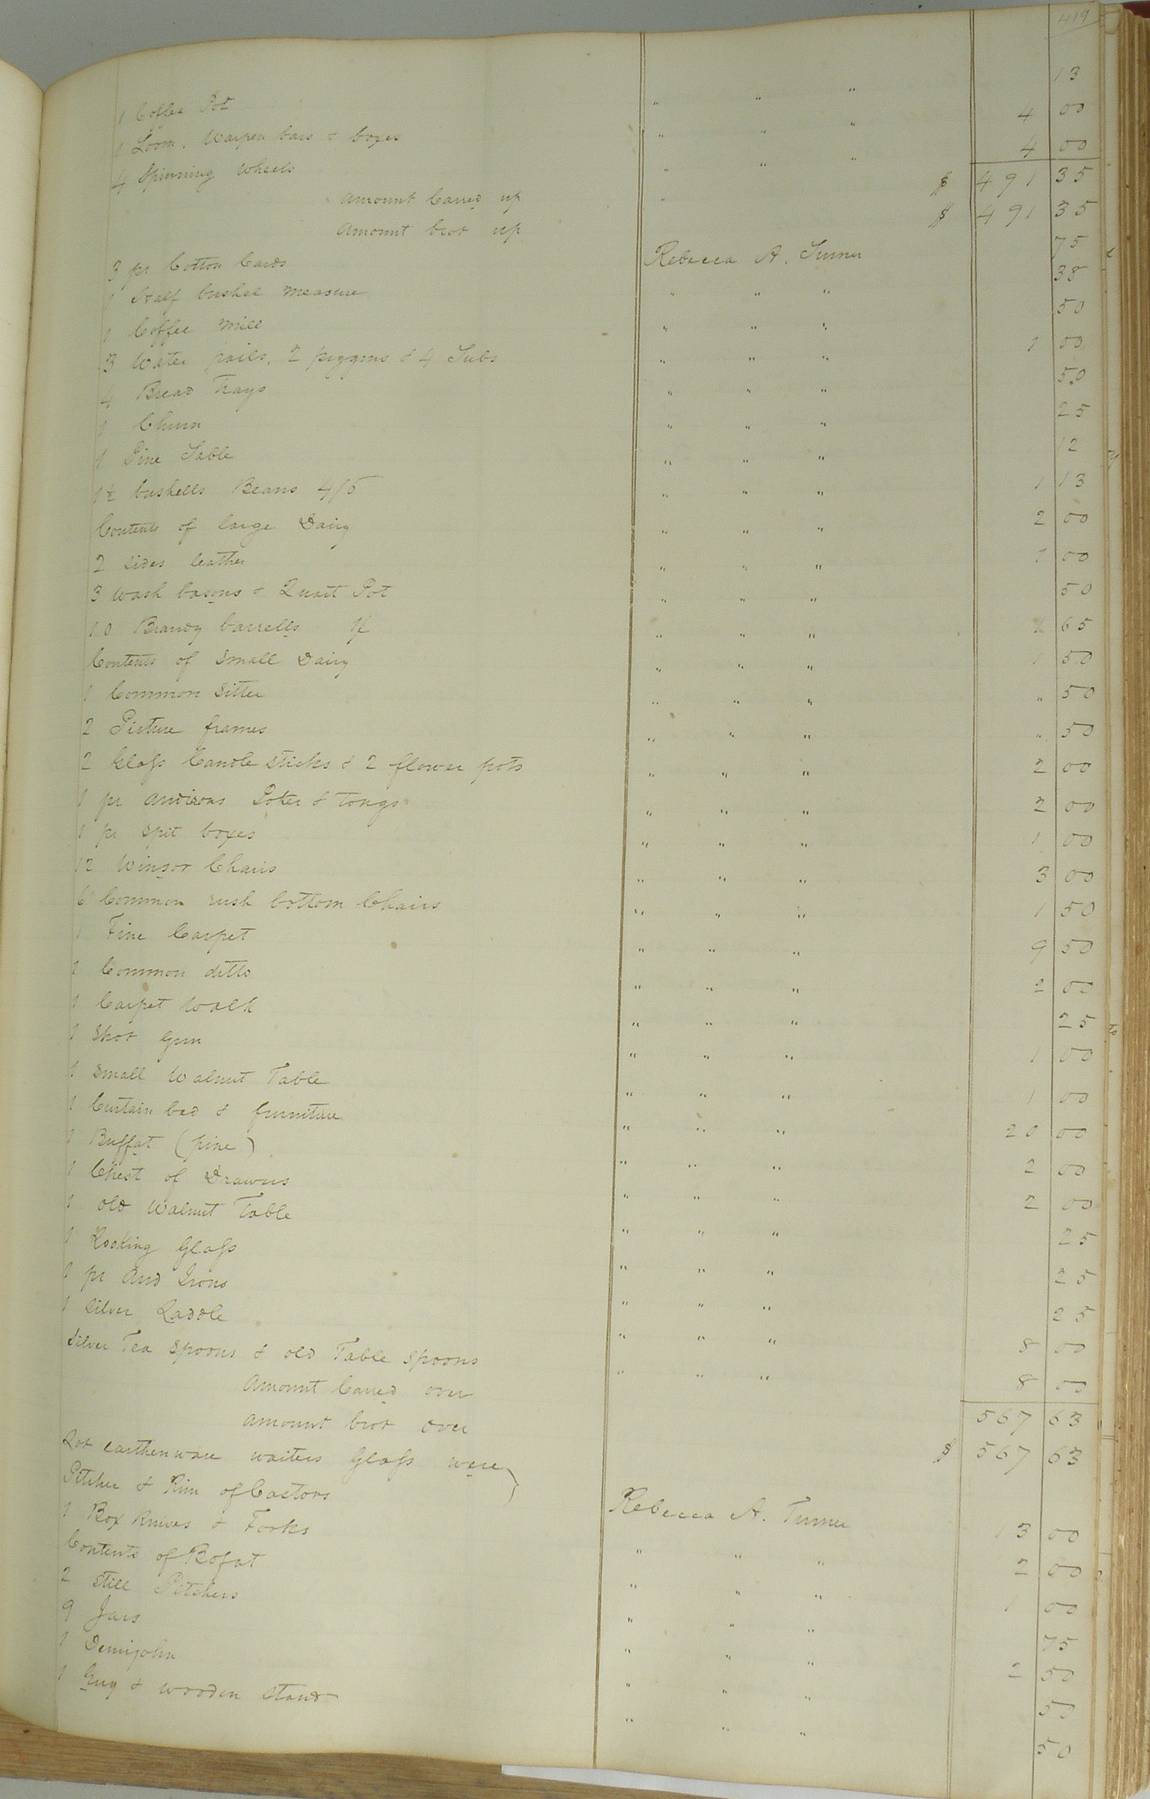 419
1 Coffee Pot " " " 13
1 Loom, Warpen bars & boxes " " " 4 00
4 Spinning Wheels " " " 4 00
Amount Carred up " $ 491 35
Amount brot up $ 491 35
3 pr Cotton Cards Rebecca A. Turner 75
1 Half bushel measure " " " 38
1 Coffee mill " " " 50
3 Water pails, 2 piggins & 4 Tubs " " " 1 00
4 Bread Trays " " " 50
1 Churn " " " 25
1 Pine Table " " " 12
1½ bushells Beans 4/6 " " " 1 13
Contents of large Dairy " " " 2 00
2 sides leather " " " 1 00
3 Wash basons & Quart Pot " " " 50
10 Brandy barrells " " " 65
Contents of Small Dairy " " " 1 50
1 Common Sitter " " " " 50
2 Picture frames " " " " 50
2 Glass Candle sticks & 2 flower pots " " " 2 00
1 pr andirons Poker & tongs " " " 2 00
1 pr spit boxes " " " 1 00
12 Winsor Chairs " " " 3 00
6 Common rush bottom Chairs " " " 1 50
1 Fine Carpet " " " 9 50
1 Common ditto " " " 2 00
1 Carpet Walk " " " 25
1 Shot Gun " " " 1 00
1 Small Walnut Table " " " 1 00
1 Curtain bed & furniture " " " 20 00
1 Buffat (pine) " " " 2 00
1 Chest of Drawers " " " 2 00
1 old Walnut Table " " " 25
1 Looking Glass " " " 25
1 pr And Irons " " " 25
1 Silver Laddle " " " 8 00
Silver Tea Spoons & old Table Spoons " " " 8 00
Amount Carred over 567 63
Amount brot over $ 567 63
Lot earthenware waiters Glass were
Pitcher & Rim of Castors Rebecca A. Turner 13 00
1 Box Knives & Forks " " " 2 00
Contents of Bofat " " " 1 00
2 Still Pitchers " " " 75
9 Jars " " " 2 50
1 Demijohn " " " 50
1 Gug & wooden stand " " " 50